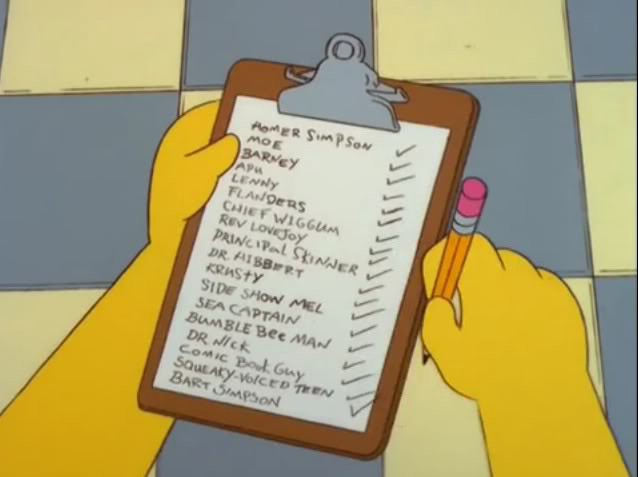 HOMER SIMPSON
MOE
BARNEY
APU
LENNY
FLANDERS
CHIEF WIGGUM
REV LOVEJOY
PRINCIPAL SKINNER
DR. HIBBERT
KRUSTY
SIDE SHOW MEL
SEA CAPTAIN
BUMBLE Bee MAN
DR NICK
COMIC Book Guy
SQUEAKY-VOICED TEEN
BART SIMPSON